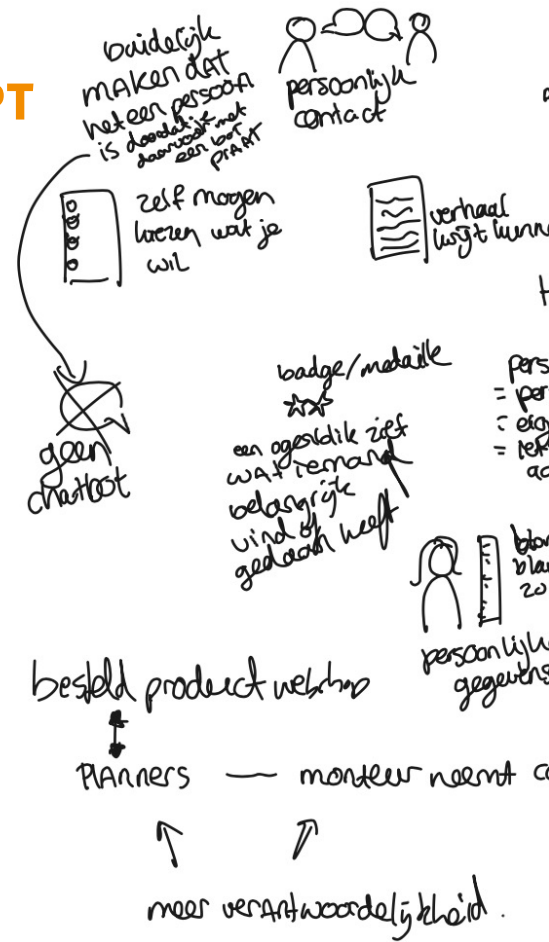 PT
duidelijk
maken dat
het een persoon
is doordat je
daarvoor met
een bot
praat
persoonlijk
contact
zelf mogen
kiezen wat je
wil
verhaal
kwijt kunn
geen
chatbot
badge/medaille
een ogeslik ziet
wat iemand
belangrijk
vind of
gedaan heeft
pers
= per
persoonlijke
gegevens
besteld product webshop
Planners — monteur neemt co
meer verantwoordelijkheid.